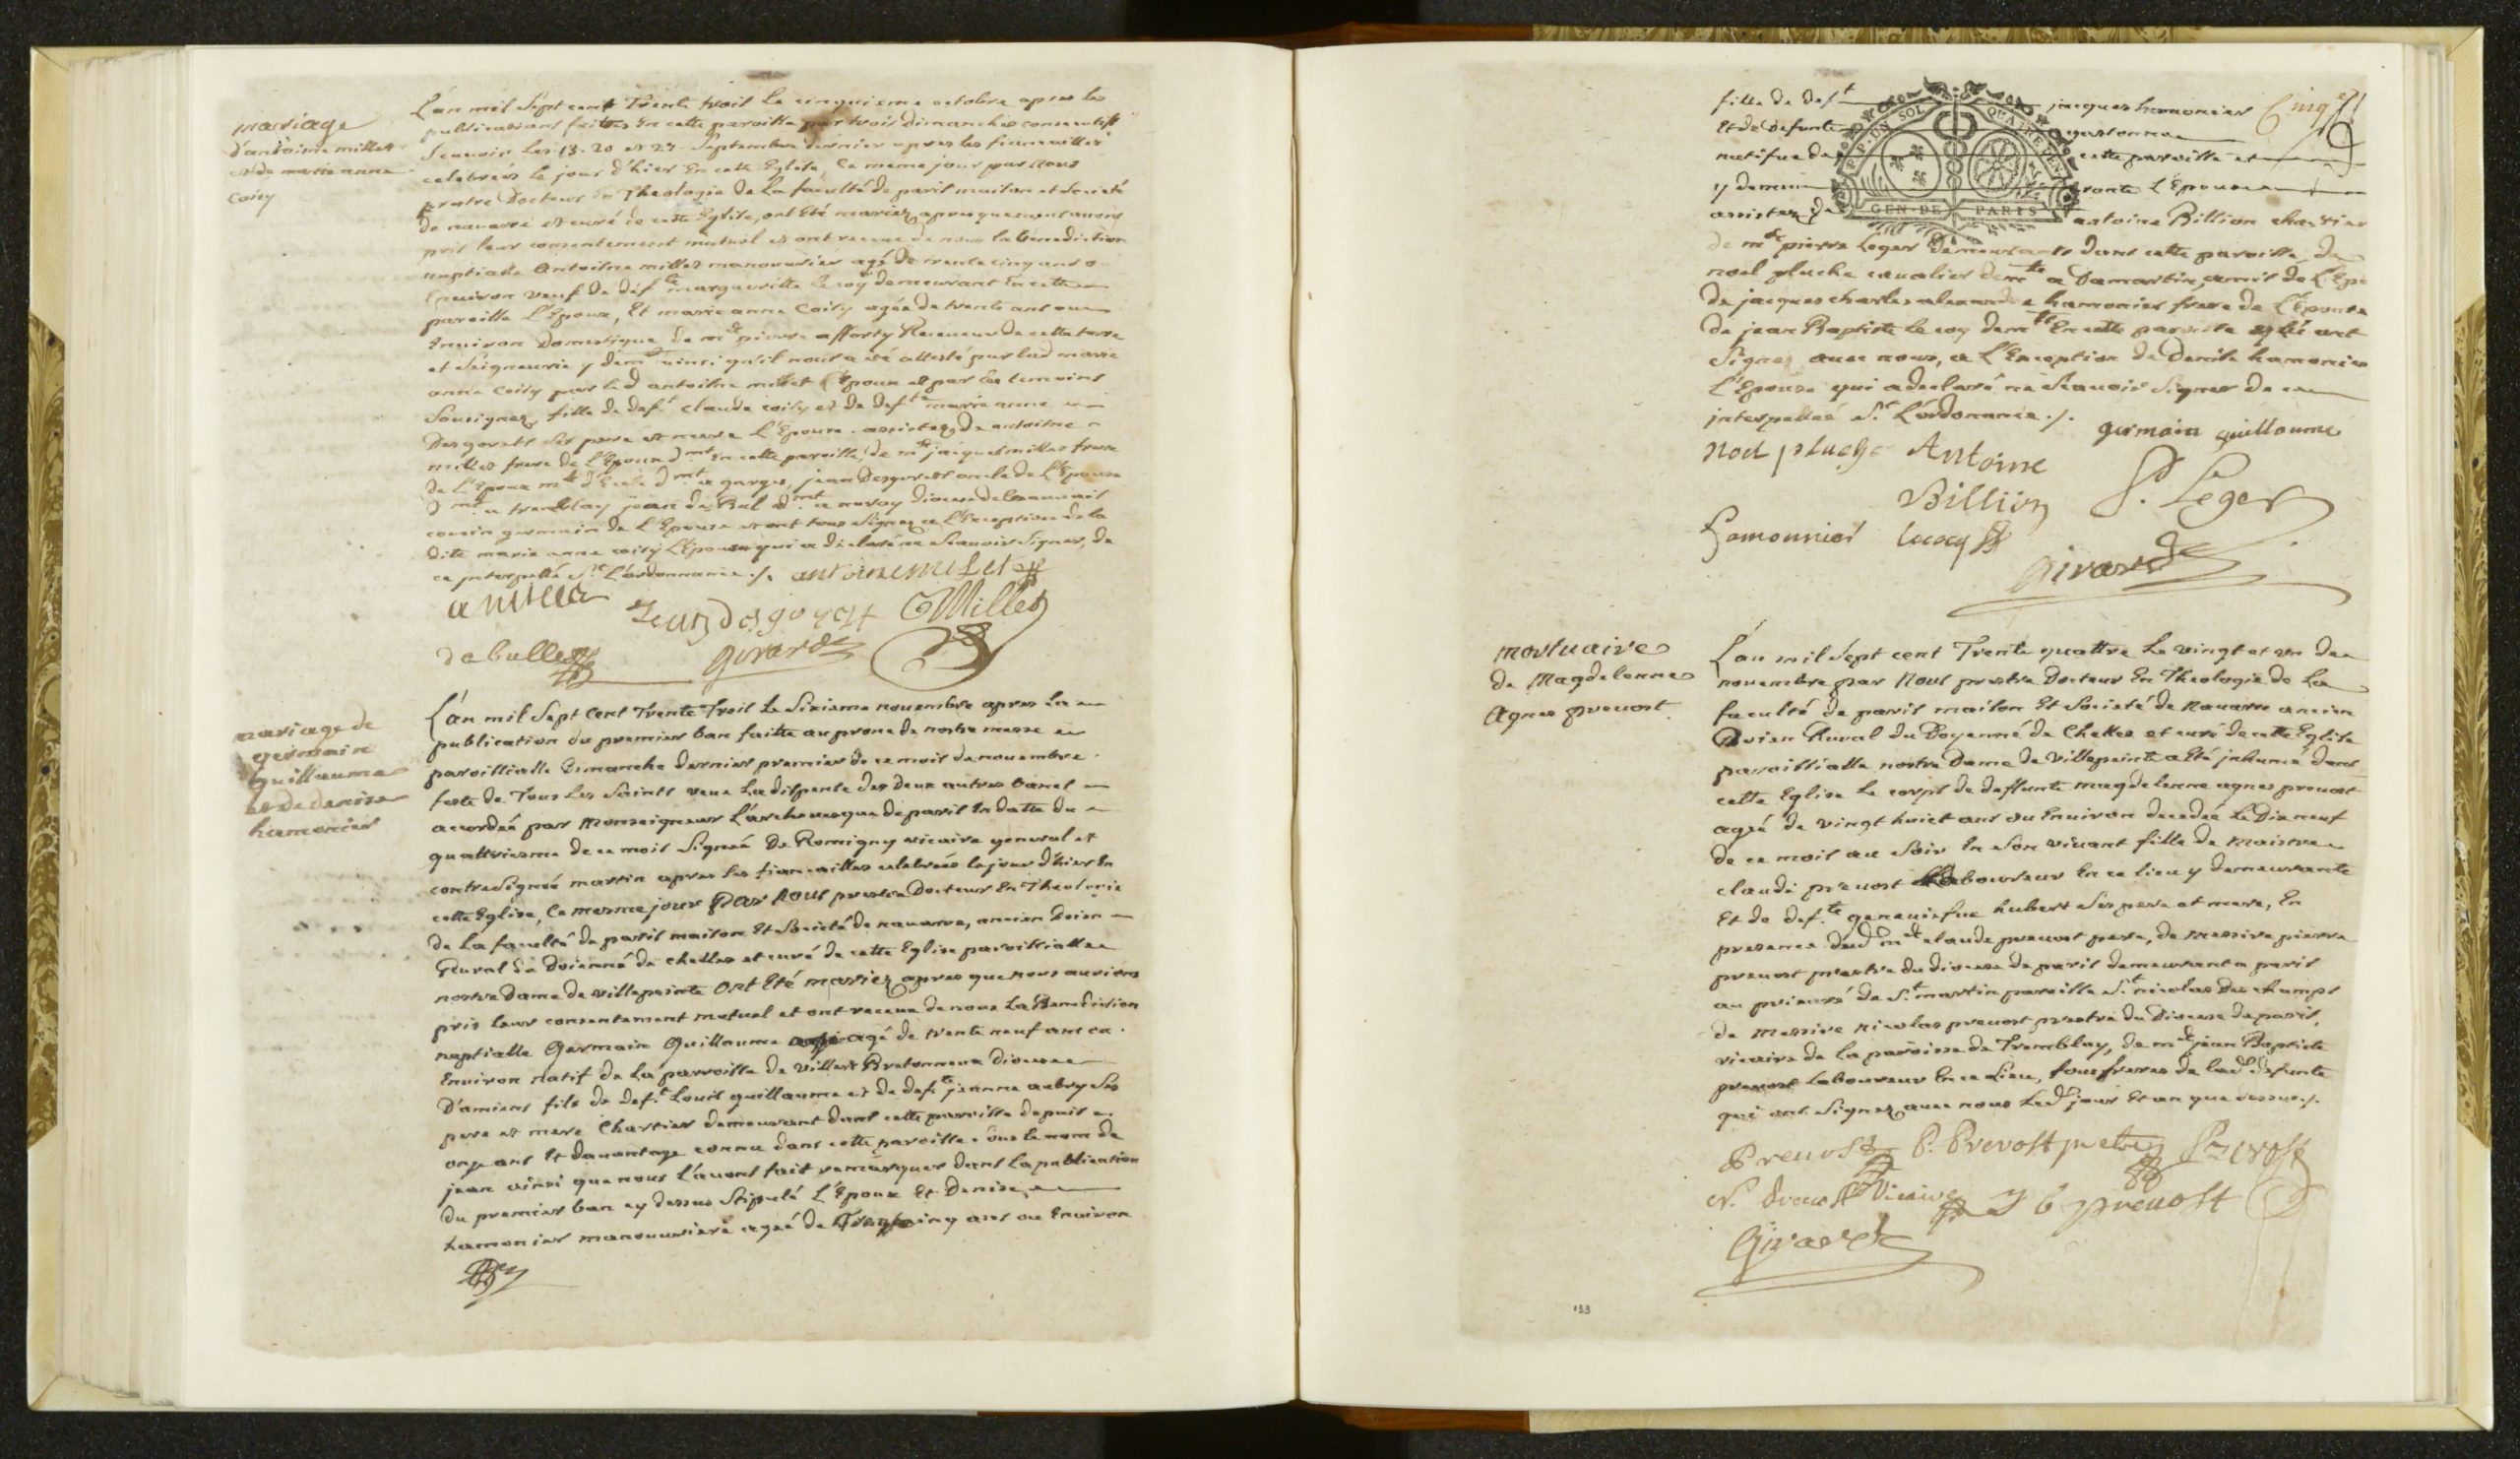 mariage
d'antoine millet
et de marie anne
coisy
L'an mil sept cent Trente trois le cinquiesme octobre apres les
publications faittes En cette paroisse par trois dimanches consecutifs
Scauoir les 13. 20 et 27. Septembre dernier apres les fiancailles
celebrées le jour d'hier En cette Eglise, Ce meme jour par Nous
prestre Docteur En Theologie de la faculté de paris maison et Societé
de nauarre et curé de cette Eglise, ont Eté mariez apres que nous auons
pris leur consentement mutuel et ont receue de nous la benediction
nuptialle Antoine millet manouurier agé de trente cinq ans o
Enuiron veuf de def.te margueritte le roy demeurant En cette
paroisse l'Epoux, Et marie anne Coisy agée de trente ans ou
Enuiron Domestique de m.e pierre afforty Receueur de cette terre
et Seigneurie y dem.t ainsi qu'il nous a eté attesté par lad marie
anne Coisy par le d antoine millet l'Epoux et par les temoins
Sousignez fille de def.t claude coisy et de def.te marie anne
Desgorets ses pere et mere L'Epouse. assistez de antoine
millet frere de L'Epoux d.mt En cette paroisse, de m.e jacques millet frere
de L'Epoux m.e d'Ecole d.mt a garges, jean Desgorets oncle de L'Epouse
d.mt a tremblay jean de Bul d.mt a diocese de beauuais
cousin germain de L'Epouse et ont tous Signez a L'Exception de la
dite marie anne coisy L'Epouse qui a declaré ne Scauoir Signer, de
ce jnterpellé S.t L'ordonnance ./. antoine milet
a millet Jean Desgorest Millet
debulle Girard
mariage de
germain
Guillaume
et de denise
hamonier
L'an mil Sept Cent Trente Trois le Sixieme nouembre apres la
publication du premier ban faitte au prone de nostre messe
paroissialle Dimanche dernier premier de ce mois de nouembre
feste de Tous les Saints veue La dispense des deux autres bancs
accordée par Monseigneur L'archeuesque de paris En datte du
quattriesme de ce mois Signeé De Romigny vicaire general et
contresignée martin apres les fiancailles celebrées le jour d'hier En
cette Eglise, Ce mesme jour Par Nous prestre Docteur En Theologie
de La faculté de paris maison Et Societé de nauarre, ancien Doien
Rural du Doienné de chelles et curé de cette Eglise paroissialle
nostre Dame de villepeinte Ont Eté mariez apres que nous aurions
pris leur consentement mutuel et ont receue de nous La Benediction
nuptialle Germain Guillaume agé de trente neuf ans ou
Enuiron natif de La parroisse de villers Bretonneux Diocese
D'amiens fils de def.t Louis guillaume et de def.te jeanne aubry Ses
pere et mere Chartier demeurant dans cette paroisse depuis
onze ans Et dauantage connu dans cette paroisse sous le nom de
jean ainsi que nous L'auons fait remarquer dans la publication
du premier ban cy dessus Stipulé L'Epoux Et Denise
hamonier manouuriere ageé de cinq ans ou Enuiron
fille de def.t jacques hamonier Cinq
Et de defunte
natifue de cette paroisse et
y demeurante L'Epouse
assistez de antoine Billion chartier
de m.e pierre Leger demeurants dans cette paroisse, de
noel pluche caualier dem.t a Damartin, amis de L'Epo
de jacques charles alexandre hamonier frere de L'Epouse
de jean Baptiste le roy dem.t En cette paroisse qui ont
Signez auec nous, a L'Exception de Denise hamonier
L'Epouse qui a declaré ne Scauoir Signer de ce
jnterpelleé S.t L'ordonnance ./. germain guillaume
Noel pluche Antoine
Billion P. Leger
hamonnier Leroy
Girard
GEN. DE PARIS
mortuaire
de Magdelenne
Agnes preuost
L'an mil Sept cent Trente quattre Le vingt et un de
nouembre par Nous prestre Docteur En Theologie de La
faculté de paris maison Et Societé de Nauarre ancien
Doien Rural du Doyenné de Chelles et curé de cette Eglise
paroissialle nostre Dame de Villepeinte a Eté jnhumé dans
cette Eglise Le corps de deffunte magdelenne agnes preuost
ageé de vingt huict ans ou Enuiron decedeé Le Dixneuf
de ce mois au Soir En Son viuant fille de Maistre
claude preuost Laboureur En ce lieu y demeurante
Et de def.te geneuiefue hubert Ses pere et mere, En
presence dud m.e claude preuost pere, de Messire pierre
preuost prestre du diocese de paris demeurant a paris
au prieuré de S.t martin paroisse S.t nicolas Des champs
de Messire Nicolas preuost prestre du Diocese de paris,
vicaire de La paroisse de Tremblay, de m.e jean Baptiste
preuost Laboureur En ce Lieu, tous freres de lad.e defunte
qui ont Signez auec nous Led. jour Et an que dessus ./.
Preuost P. Prevost pretre Preuost
N. Preuost Vicaire J b preuost
Girard
133